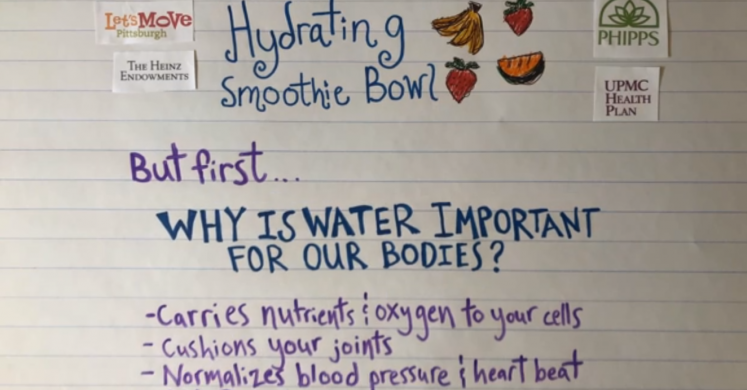 Let's Move
Pittsburgh
THE HEINZ
ENDOWMENTS
Hydrating
Smoothie Bowl
PHIPPS
UPMC
HEALTH
PLAN
But first...
WHY IS WATER IMPORTANT
FOR OUR BODIES?
-Carries nutrients & oxygen to your cells
- Cushions your joints
- Normalizes blood pressure & heart beat